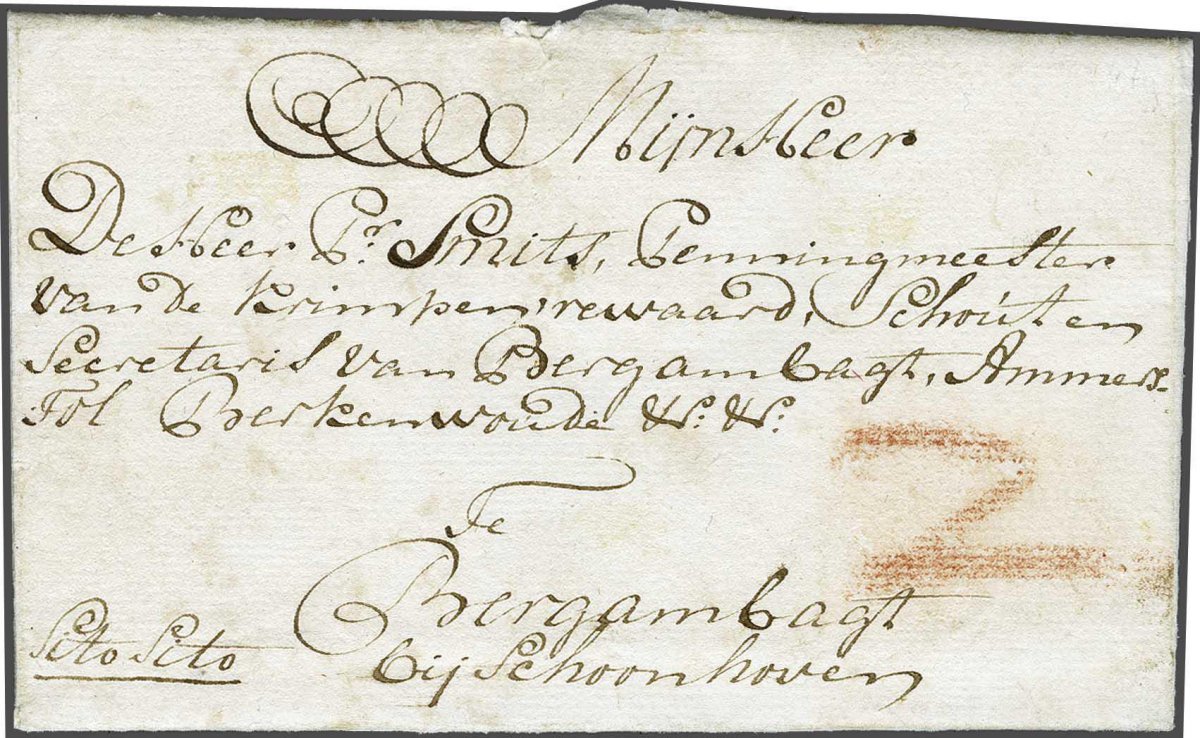 MijnHeer
De Heer Pr. Smits, Penningmeester
van de Krimpenrewaard, Schout en
Secretaris van Bergambagt, Ammers-
Tol Berkenwoude &c. &c.
Te
Bergambagt
bij Schoonhoven
Cito Cito
2